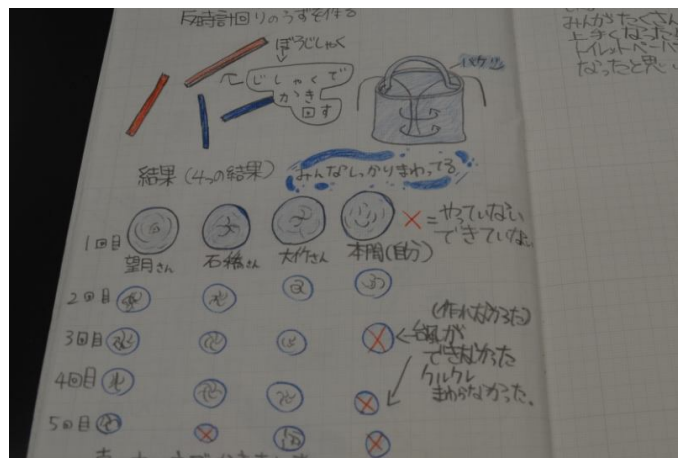 反時計回りのうずを作る
ぼうじしゃく
じしゃくで
かき
回す
バケツ
結果(4つの結果)
みんなしっかりまわってる
1回目
望月さん
石橋さん
大竹さん
本間(自分)
×=やっていない
できていない
2回目
3回目
(作れなかった)
←台風が
できなかった
クルクル
まわらなかった。
4回目
5回目
みんながたくさん
上手くなった
トイレットペーパー
なったと思い